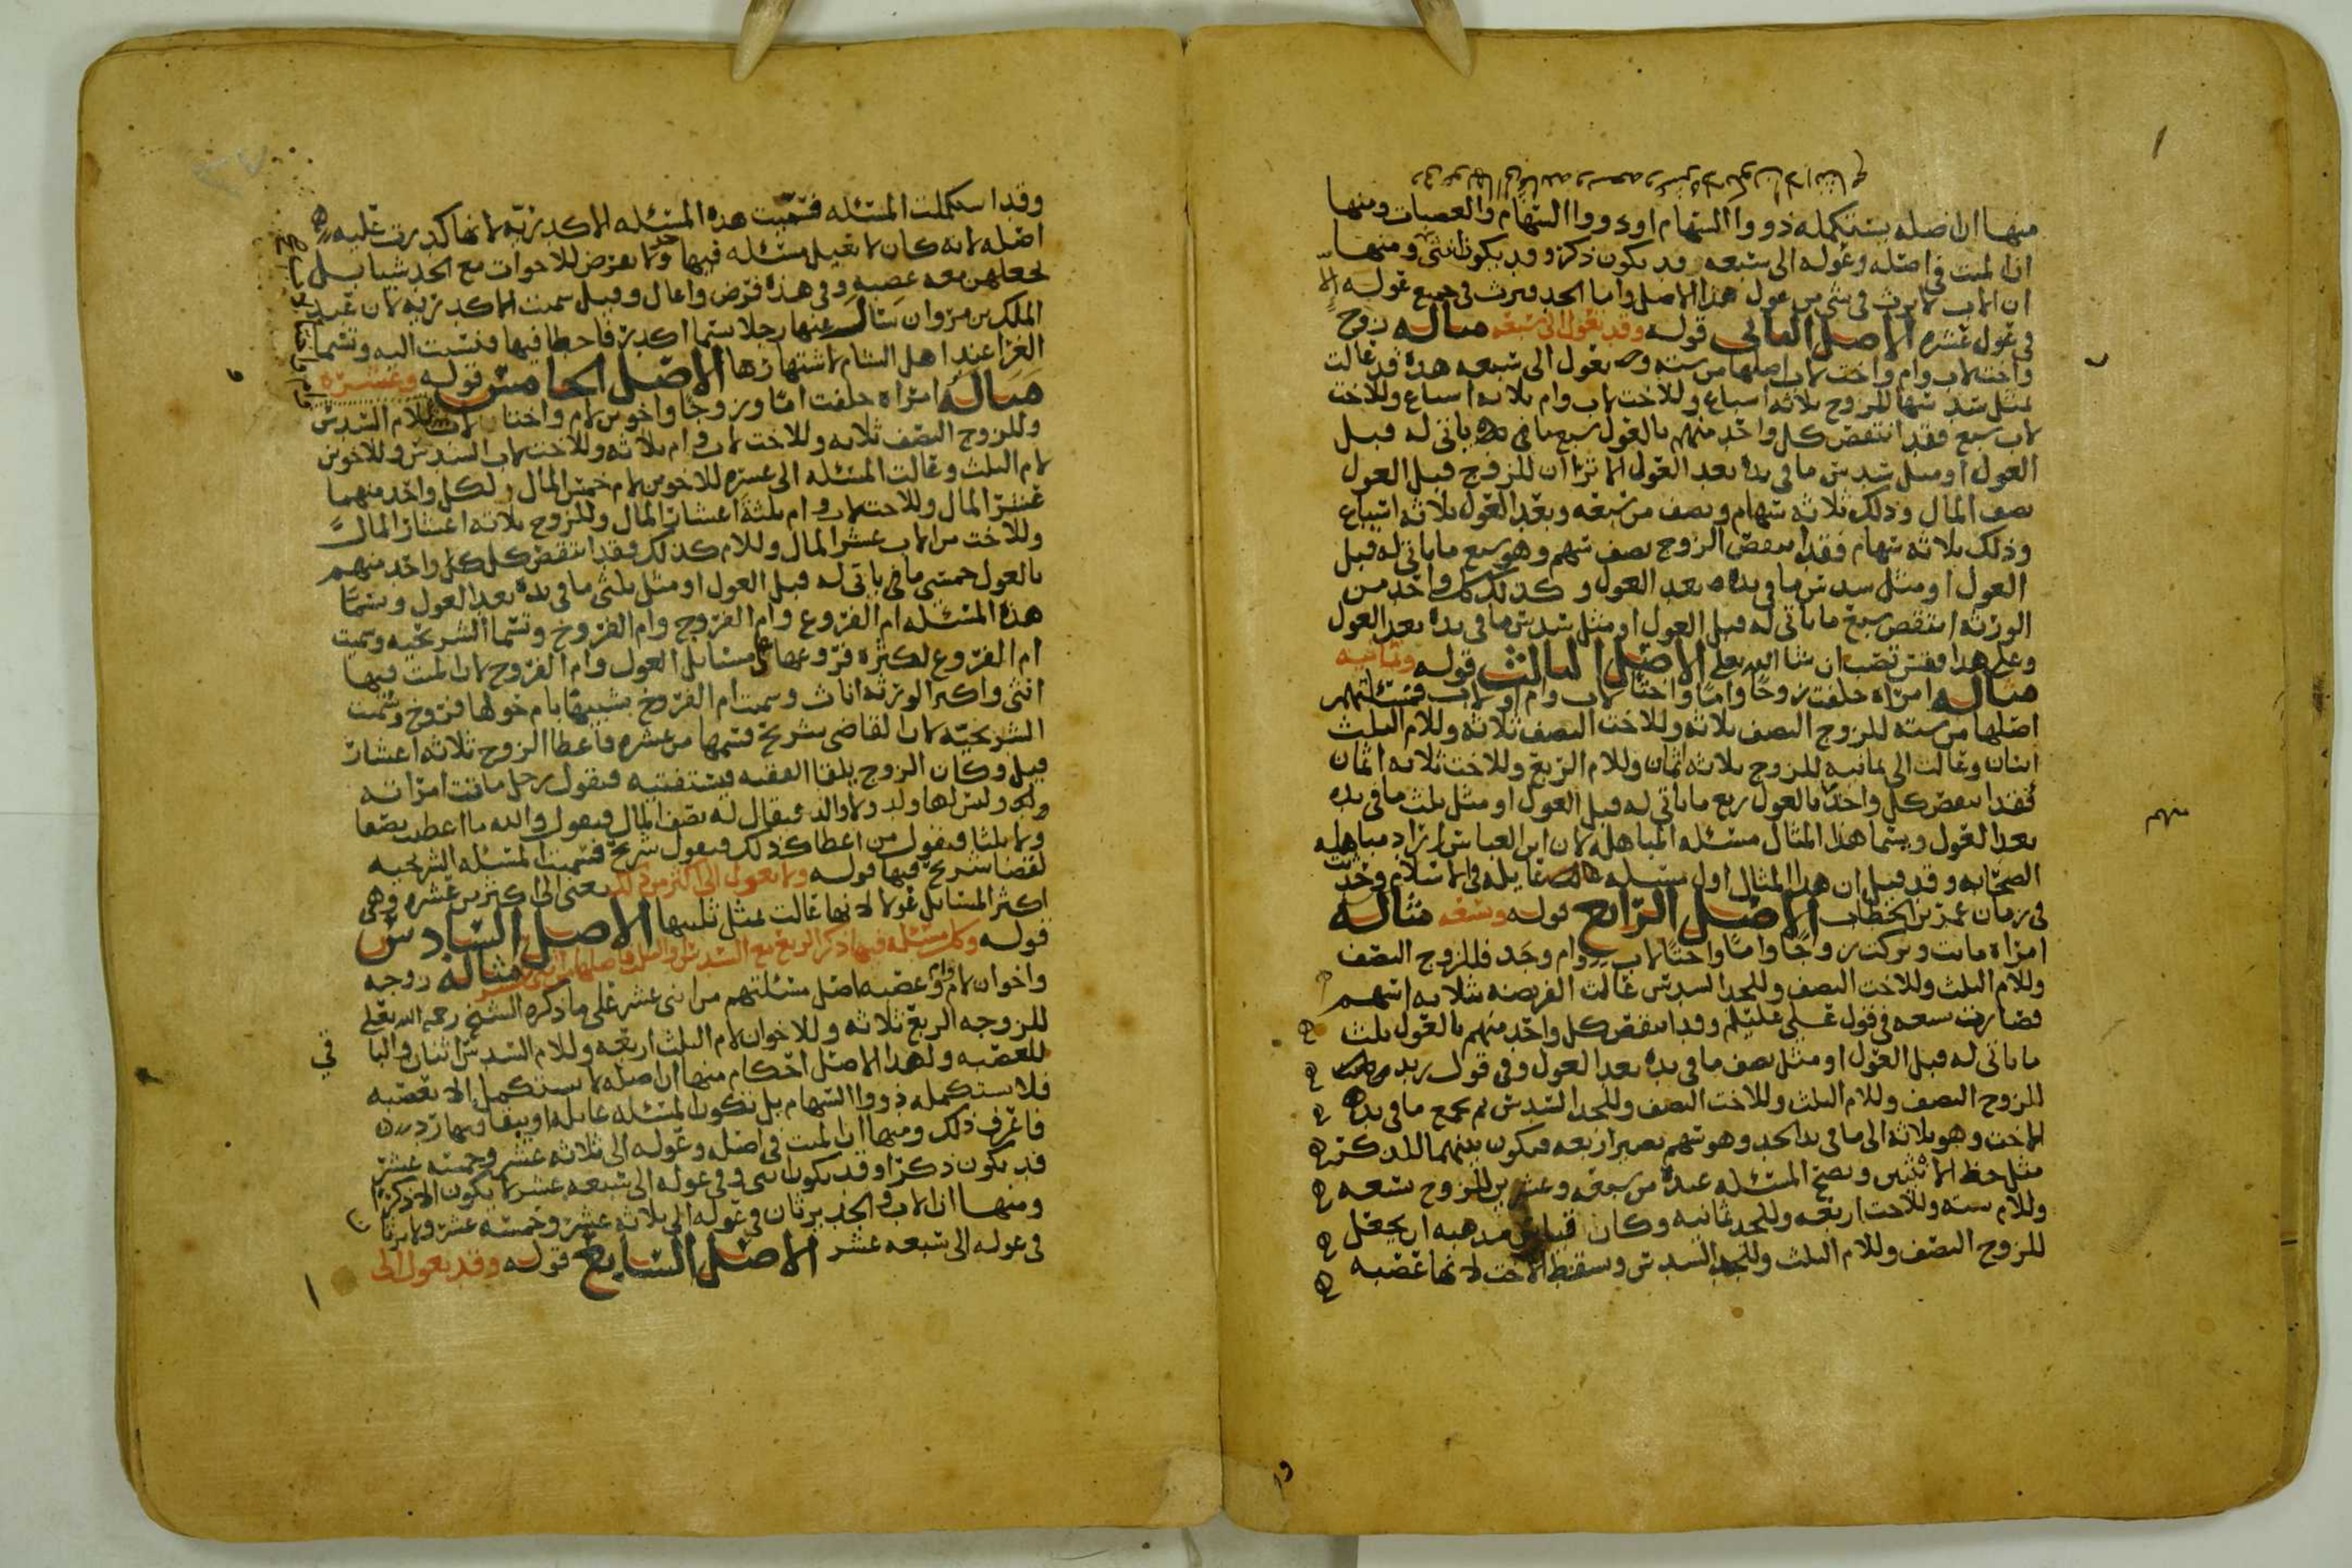 منها ان اصله يستكمله ذووا السهام او ذووا السهام والعصبات ومنها
ان الميت في اصله وعوله الى سبعه قد يكون ذكر وقد يكون انثى ومنها
ان الاب لا يرث في شي من عول هذا الاصل واما الجد فيرث في جميع عوله الا
في عول عشره الاصل الثاني قوله وقد تعول الى سبعه مثاله زوج
واخت لاب وام واخت لاب اصلها من سته وتعول الى سبعه هذه قد عالت
بمثل سدسها للزوج ثلاثه اسباع وللاخت لاب وام ثلاثه اسباع وللاخت
لاب سبع فقد انتقص كل واحد منهم بالعول سبع ما ياتي له قبل
العول او مثل سدس ما في يده بعد العول الا ترا ان للزوج قبل العول
نصف المال وذلك ثلاثه سهام ونصف من سبعه وبعد العول ثلاثه اسباع
وذلك ثلاثه سهام فقد انتقص الزوج نصف سهم وهو سبع ما ياتي له قبل
العول او مثل سدس ما في يده بعد العول وكذلك كل واحد من
الورثه انتقص سبع ما ياتي له قبل العول او مثل سدس ما في يده بعد العول
وعلى هذا فقس تصب ان شا الله تعلى الاصل الثالث قوله وثمانيه
مثاله امراه خلفت زوجا واما واختا لاب وام او لاب فمسئلتهم
اصلها من سته للزوج النصف ثلاثه وللاخت النصف ثلاثه وللام الثلث
اثنان وعالت الى ثمانيه للزوج ثلاثه اثمان وللام الربع وللاخت ثلاثه اثمان
فقد انتقص كل واحد بالعول ربع ما ياتي له قبل العول او مثل ثلث ما في يده
بعد العول ويسما هذا المثال مسئله المباهله لان ابن العباس اراد مباهله
الصحابه وقد قيل ان هذا المثال اول مسئله عايله في الاسلام وحدثت
في زمان عمر بن الخطاب الاصل الرابع قوله وتسعه مثاله
امراه ماتت وتركت زوجا واما واختا لاب وام وجد فللزوج النصف
وللام الثلث وللاخت النصف وللجد السدس عالت الفريضه بثلاثه اسهم
فصارت تسعه في قول علي عليلم وقد انتقص كل واحد منهم بالعول ثلث
ما ياتي له قبل العول او مثل نصف ما في يده بعد العول وفي قول زيد
للزوج النصف وللام الثلث وللاخت النصف وللجد السدس ثم يجمع ما في يد
الاخت وهو ثلاثه الى ما في يد الجد وهو سهم يصير اربعه فيكون بينهما للذكر
مثل حظ الانثيين وتصح المسئله عنده من سبعه وعشرين للزوج تسعه
وللام سته وللاخت اربعه وللجد ثمانيه وكان قياس مذهبه ان يجعل
للزوج النصف وللام الثلث وللجد السدس وسقط الاخت لانها عصبه
منهم
وقد استكملت المسئله فسميت هذه المسئله الاكدريه لانها كدرت عليه
اصله لانه كان لا تعيل مسئله فيها جد ولا يفرض للاخوات مع الجد شيا بل
يجعلهن معه عصبه وفي هذه فرض واعال وقيل سميت الاكدريه لان عبد
الملك بن مروان سال عنها رجلا يسما اكدر فاخطا فيها فنسبت اليه وتسما
الغرا عند اهل الشام لاشتهارها الاصل الخامس قوله وعشره
مثاله امراه خلفت اما وزوجا واخوين لام واختا لاب وللام السدس
وللزوج النصف ثلاثه وللاخت لاب وام ثلاثه وللاخت لاب السدس وللاخوين
لام الثلث وعالت المسئله الى عشره للاخوين لام خمس المال ولكل واحد منهما
عشر المال وللاخت لاب وام ثلثة اعشار المال وللزوج ثلاثه اعشار المال
وللاخت من الاب عشر المال وللام كذلك فقد انتقص كل واحد منهم
بالعول خمسي ما ياتي له قبل العول او مثل ثلثي ما في يده بعد العول ويسما
هذه المسئله ام الفروع وام الفروج وام الفروخ وتسما الشريحيه وسميت
ام الفروع لكثره فروعها في مسائل العول وام الفروج لان الميت فيها
انثى واكثر الورثه اناث وسميت ام الفروخ تشبيها بام حولها فروخ وسميت
الشريحيه لان القاضي شريح قسمها من عشره فاعطا الزوج ثلاثه اعشار
قيل وكان الزوج يلقا الفقيه فيستفتيه فيقول رجل ماتت امراته
وليس لها ولد ولا والد فيقال له نصف المال فيقول والله ما اعطيت نصفا
ولا ثلثا فيقول من اعطا كذلك فيقول شريح فسميت المسئله الشريحيه
لقضا شريح فيها قوله ولا تعول الى اكثر من ذلك يعني الى اكثر من عشره وهي
اكثر المسائل عولا لانها عالت بمثل ثلثيها الاصل السادس
قوله وكل مسئله فيها ذكر الربع مع السدس او الثلث فاصلها من اثني عشر مثاله زوجه
واخوان لام وام وعصبه اصل مسئلتهم من اثني عشر على ما ذكره الشيخ رحمه الله تعلى
للزوجه الربع ثلاثه وللاخوان لام الثلث اربعه وللام السدس اثنان والبا
قي
للعصبه ولهذا الاصل احكام منها ان اصله لا يستكمل الا بعصبه
فلا يستكمله ذووا السهام بل تكون المسئله عايله او يبقا فيها رد
فاعرف ذلك ومنها ان الميت في اصله وعوله الى ثلاثه عشر وخمسه عشر
قد يكون ذكرا وقد يكون انثى وفي عوله الى سبعه عشر لا يكون الا ذكرا
ومنها ان الاب والجد يرثان في عوله الى ثلاثه عشر وخمسه عشر ولا يرثا
في عوله الى سبعه عشر الاصل السابع قوله وقد تعول الى